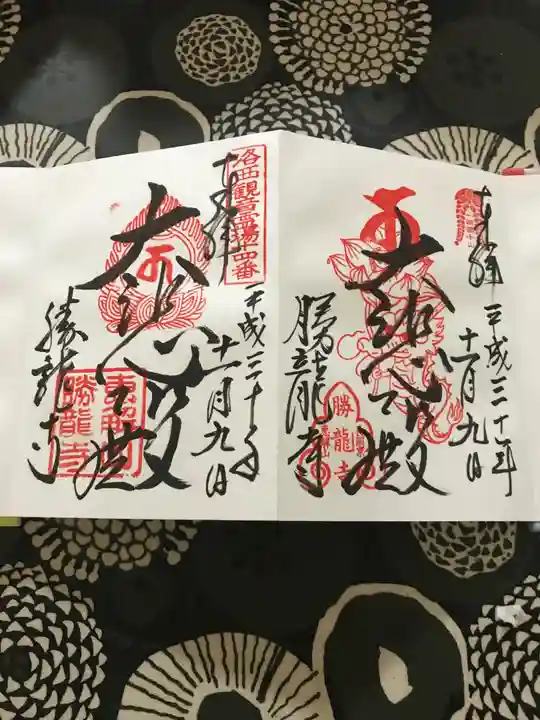 奉拝
平成三十一年
十一月九日
大悲殿
勝龍寺
勝龍寺
洛西観音霊場十四番
奉拝
平成三十年
十一月九日
大悲殿
勝龍寺
勝龍寺